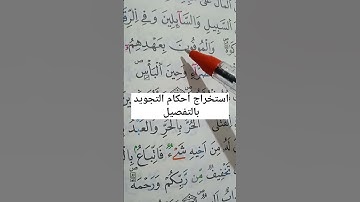 ٱلسَّبِيلِ وَٱلسَّآئِلِينَ وَفِى ٱلرِّ
وَٱلْمُوفُونَ بِعَهْدِهِمْ
وَحِينَ ٱلْبَأْسِ
استخراج أحكام التجويد
بالتفصيل
ٱلْحُرُّ بِٱلْحُرِّ وَٱلْعَبْدُ
لَهُۥ مِنْ أَخِيهِ شَىْءٌ فَٱتِّبَاعٌۢ بِٱلْ
تَخْفِيفٌ مِّن رَّبِّكُمْ وَرَحْمَةٌ